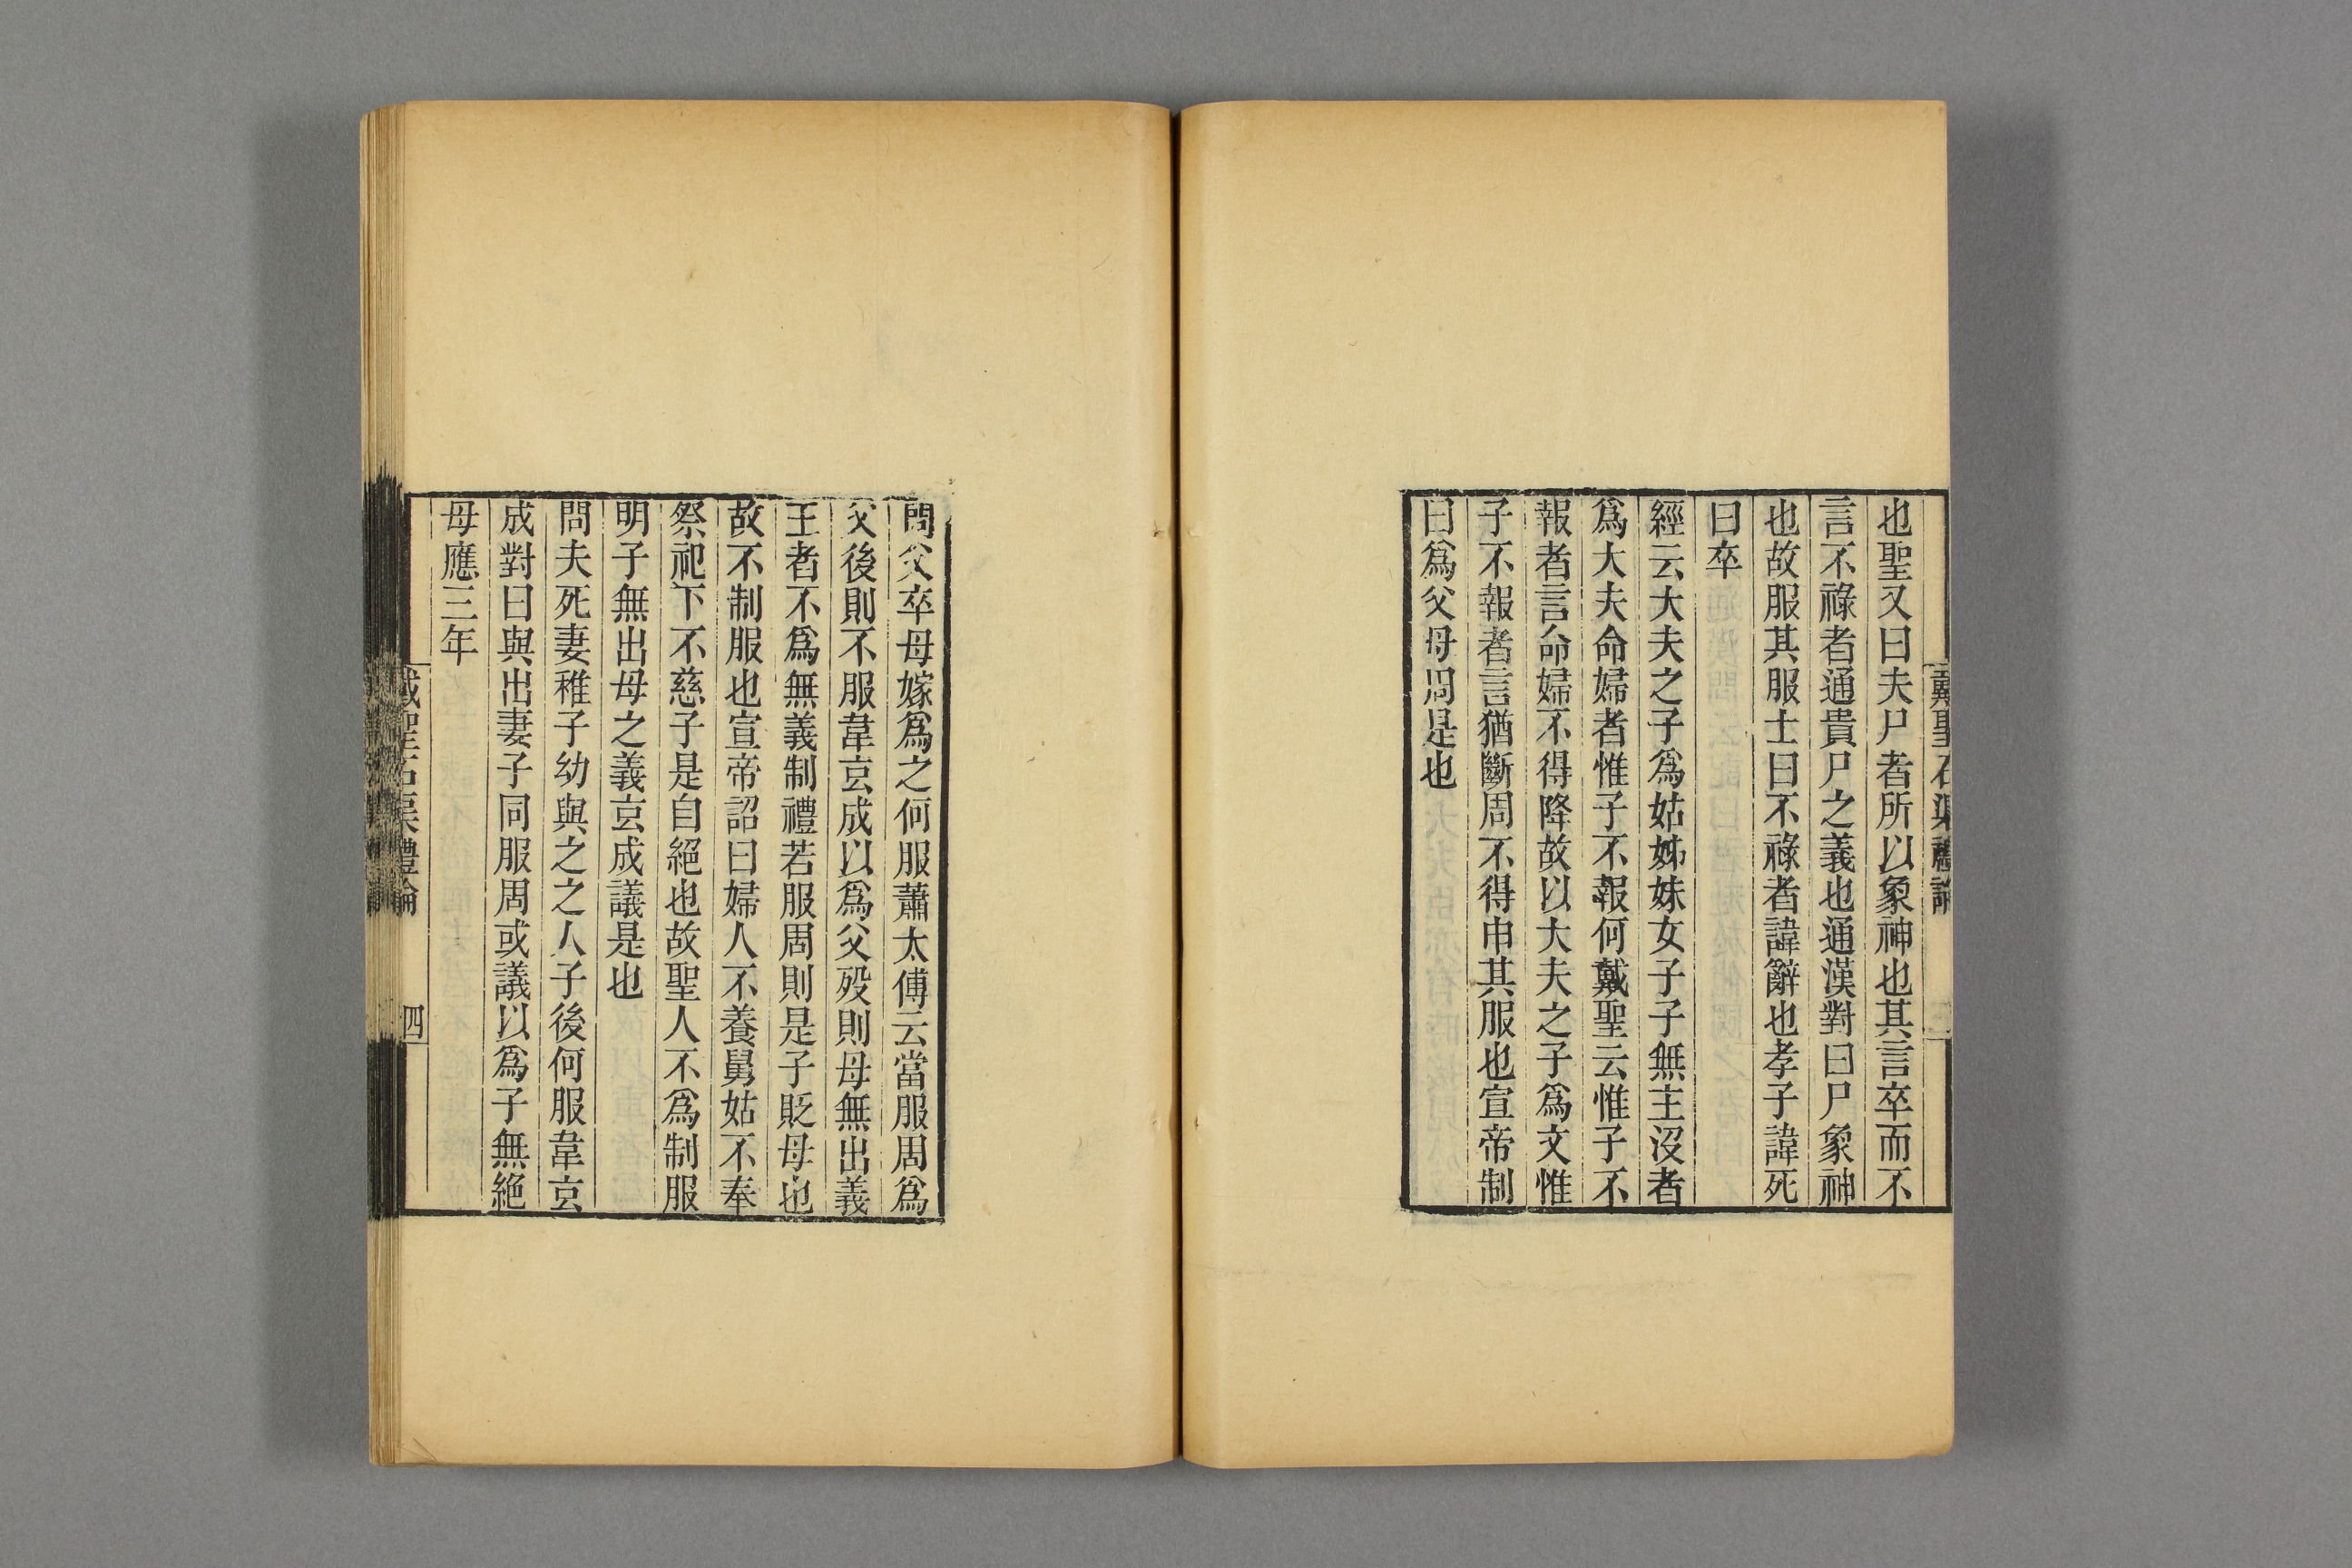 戴聖石渠禮論
也聖又曰夫尸者所以象神也其言卒而不
言不祿者通貴尸之義也通漢對曰尸象神
也故服其服士曰不祿者諱辭也孝子諱死
曰卒
經云大夫之子爲姑姊妹女子子無主沒者
爲大夫命婦者惟子不報何戴聖云惟子不
報者言命婦不得降故以大夫之子爲文惟
子不報者言猶斷周不得申其服也宣帝制
曰爲父母周是也
問父卒母嫁爲之何服蕭太傅云當服周爲
父後則不服韋玄成以爲父歿則母無出義
王者不爲無義制禮若服周則是子貶母也
故不制服也宣帝詔曰婦人不養舅姑不奉
祭祀下不慈子是自絕也故聖人不爲制服
明子無出母之義玄成議是也
問夫死妻稚子幼與之之人子後何服韋玄
成對曰與出妻子同服周或議以爲子無絕
母應三年
戴聖石渠禮論 四